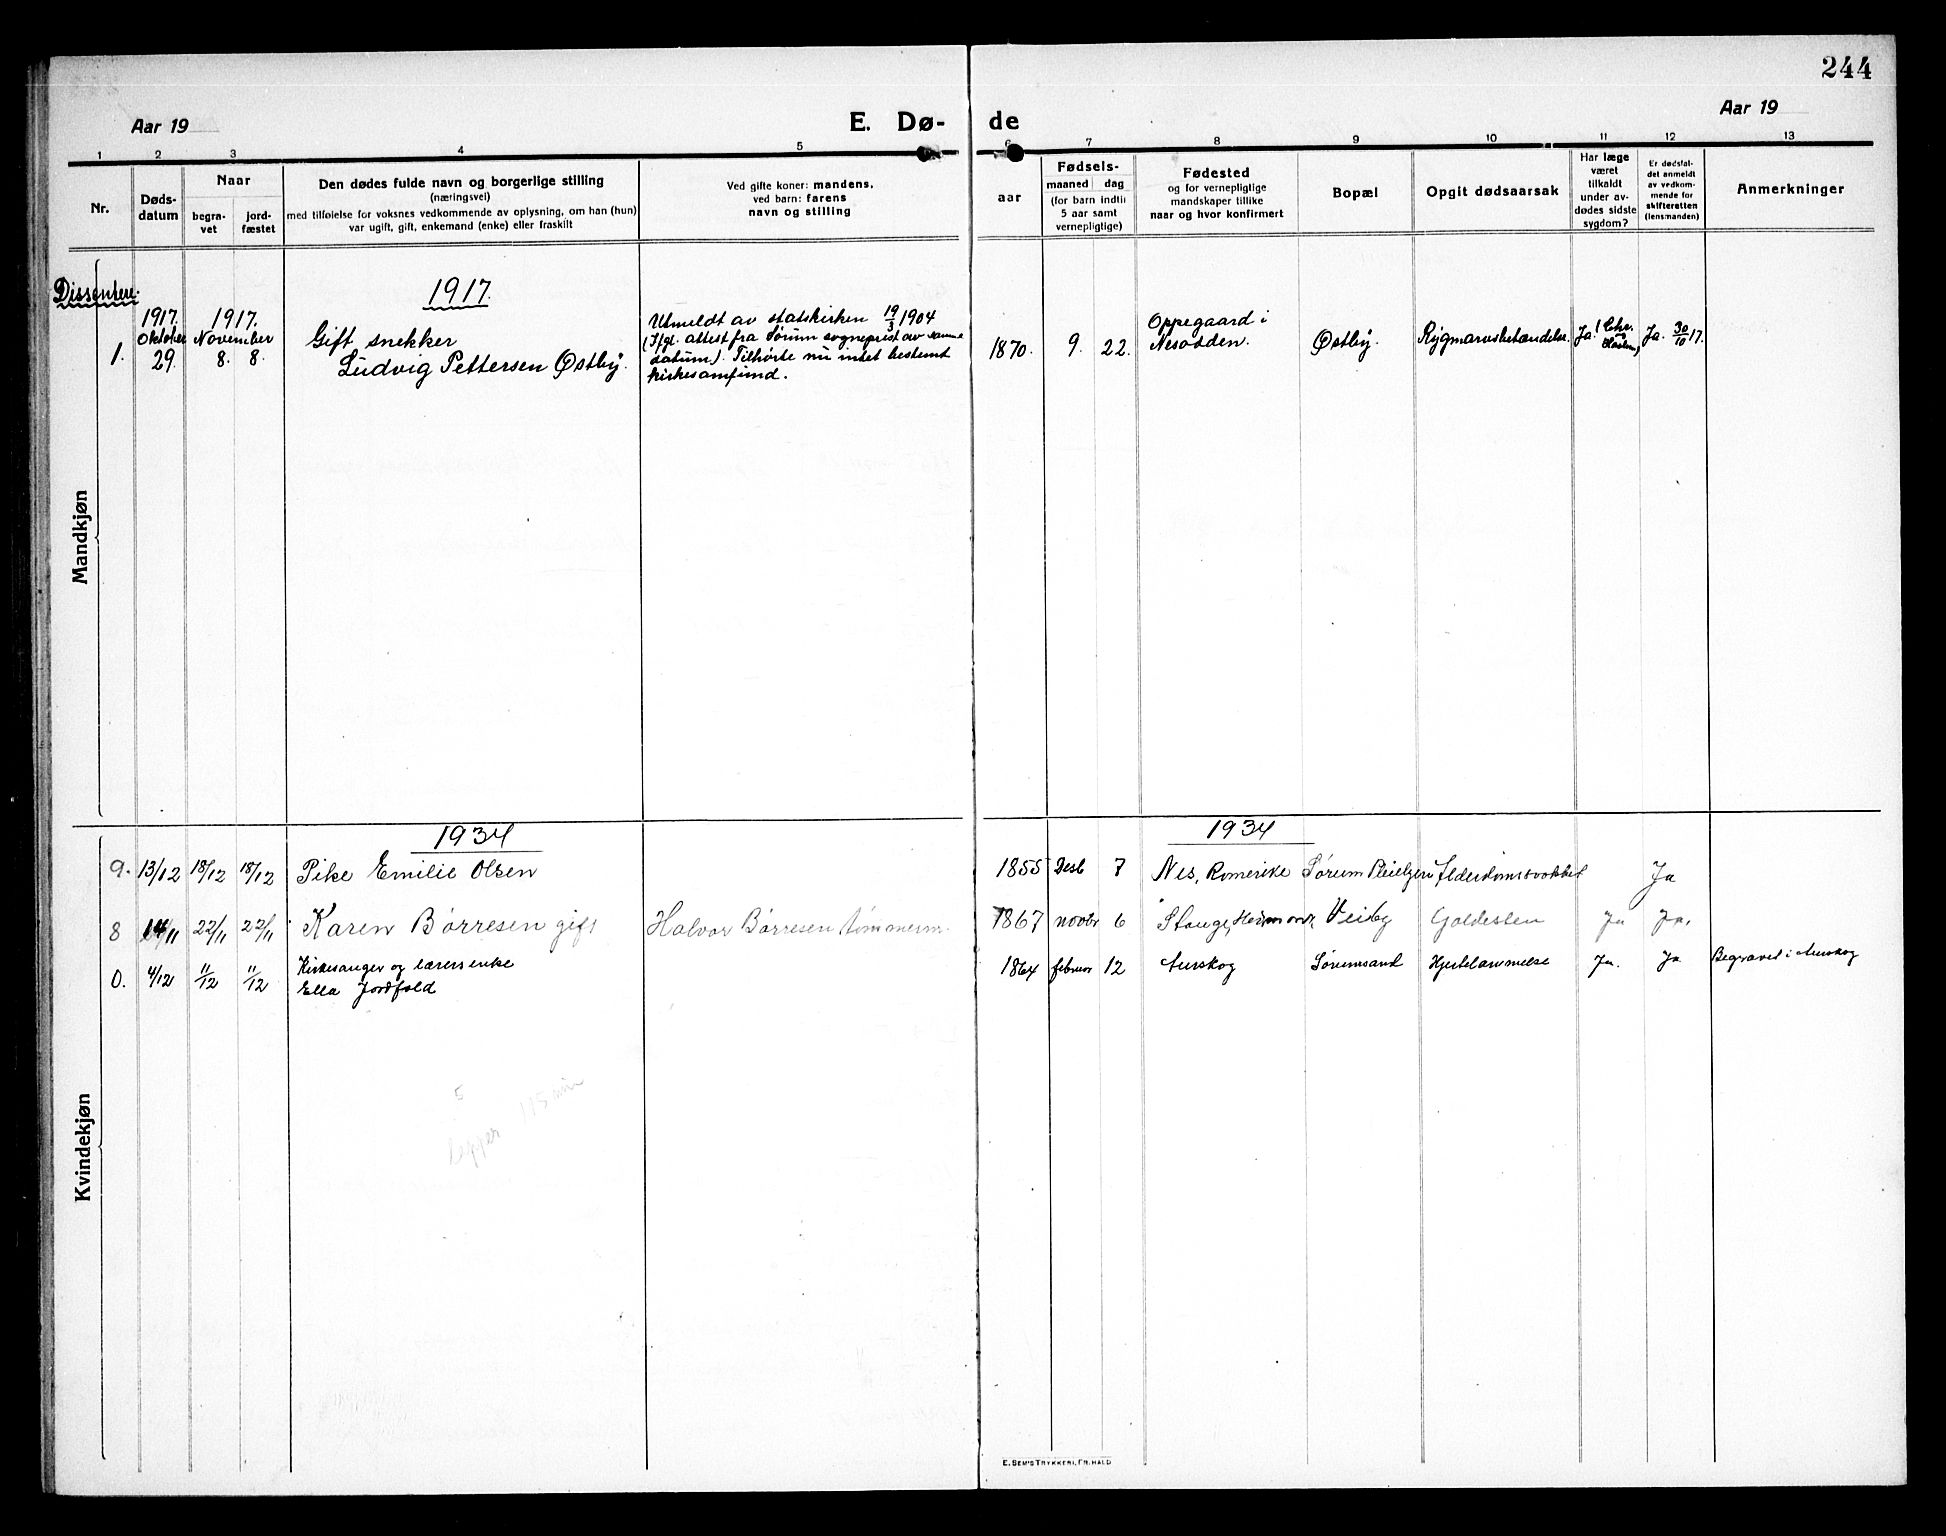 244
Aar 19
E. Dø-
de
Aar 19
1 2 3 4 5 6 7 8 9 10 11 12 13
Nr.
Døds-
datum
Naar
begra-
vet
jord-
fæstet
Den dødes fulde navn og borgerlige stilling
(næringsvei)
med tilføielse for voksnes vedkommende av oplysning, om han (hun)
var ugift, gift, enkemand (enke) eller fraskilt
Ved gifte koner: mandens,
ved barn: farens
navn og stilling
aar
Fødsels-
maaned dag
(for barn indtil
5 aar samt
vernepligtige)
Fødested
og for vernepligtige
mandskaper tillike
naar og hvor konfirmert
Bopæl
Opgit dødsaarsak
Har læge
været
tilkaldt
under av-
dødes sidste
sygdom?
Er dødsfal-
det anmeldt
av vedkom-
mende for
skifteretten
(lensmanden)
Anmerkninger
Mandkjøn
Dissentere.
1917.
1.
1917.
Oktober
29.
1917.
November
8. 8.
Gift snekker
Ludvig Pettersen Østby.
Utmeldt av statskirken 19/3 1904
(Ifgl. attest fra Sørum sogneprest av samme
datum). Tilhørte nu intet bestemt
kirkesamfund.
1870. 9. 22.
Oppegaard i
Nesodden.
Østby.
Rygmarvsbetændelse.
Ja.
Ja. 30/10 17.
Kvindekjøn
1934
1934
9. 13/12 18/12 18/12 Pike Emilie Olsen 1855 Desb 7 Nes, Romerike Sørum Alderdomssvakhet Ja
8 14/11 22/11 22/11 Karen Børresen gift Halvor Børresen tømmerm. 1867 novbr 6 Stange, Veiby Galdesten Ja Ja.
0. 4/12 11/12 11/12 Kirkesanger og lærers enke
Ella Jordfald
1864 februar 12 Aurskog Sørumsand Hjertelammelse Ja. Ja Begravet i Aurskog
E. SEM'S TRYKKERI, FR. HALD